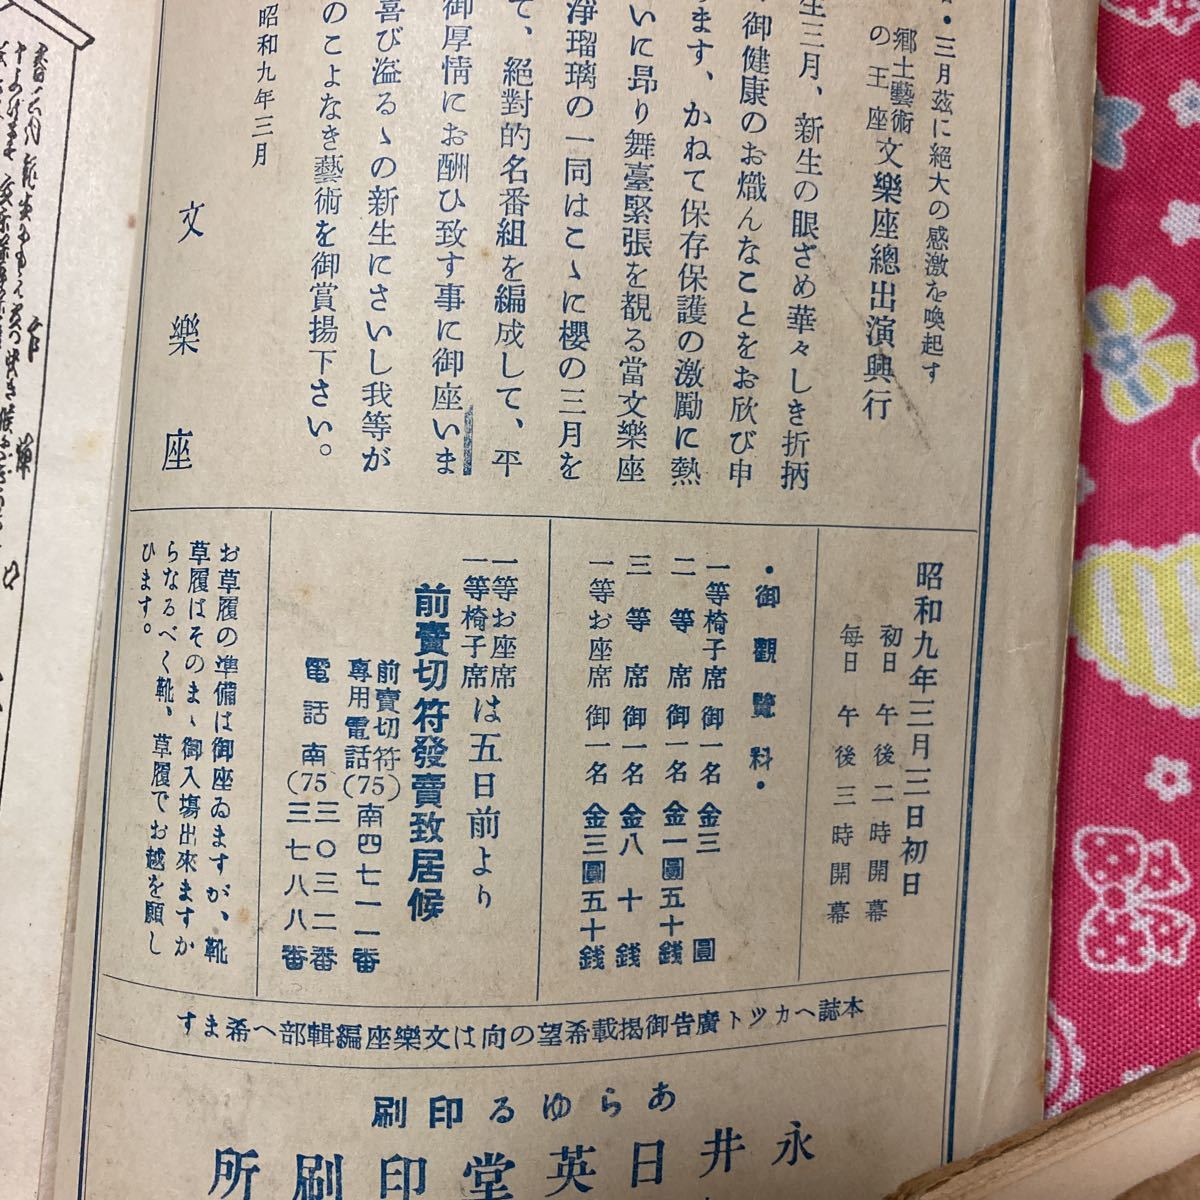 ・三月茲に絕大の感激を喚起す
郷土藝術
の王座
文樂座總出演興行
生三月、新生の眼ざめ華々しき折柄
御健康のお熾んなことをお欣び申
ます、かねて保存保護の激勵に熱
いに昻り舞臺緊張を覩る當文樂座
淨瑠璃の一同はこゝに櫻の三月を
て、絕對的名番組を編成して、平
御厚情にお酬ひ致す事に御座いま
喜び溢るゝの新生にさいし我等が
のこよなき藝術を御賞揚下さい。
昭和九年三月
文樂座
昭和九年三月三日初日
初日 午後二時開幕
每日 午後三時開幕
・御觀覽料・
一等椅子席 御一名 金三圓
二等席 御一名 金一圓五十錢
三等席 御一名 金八十錢
一等お座席 御一名 金三圓五十錢
一等お座席
一等椅子席
は五日前より
前賣切符發賣致居候
前賣切符
專用電話(75)南四七一一番
電話南(75三〇三二番
三七八八番
お草履の準備は御座ゐますが、靴
草履はそのまゝ御入塲出來ますか
らなるべく靴、草履でお越を願し
ひます。
本誌へカット廣告御揭載希望の向は文樂座編輯部へ希ます
あらゆる印刷
永井日英堂印刷所